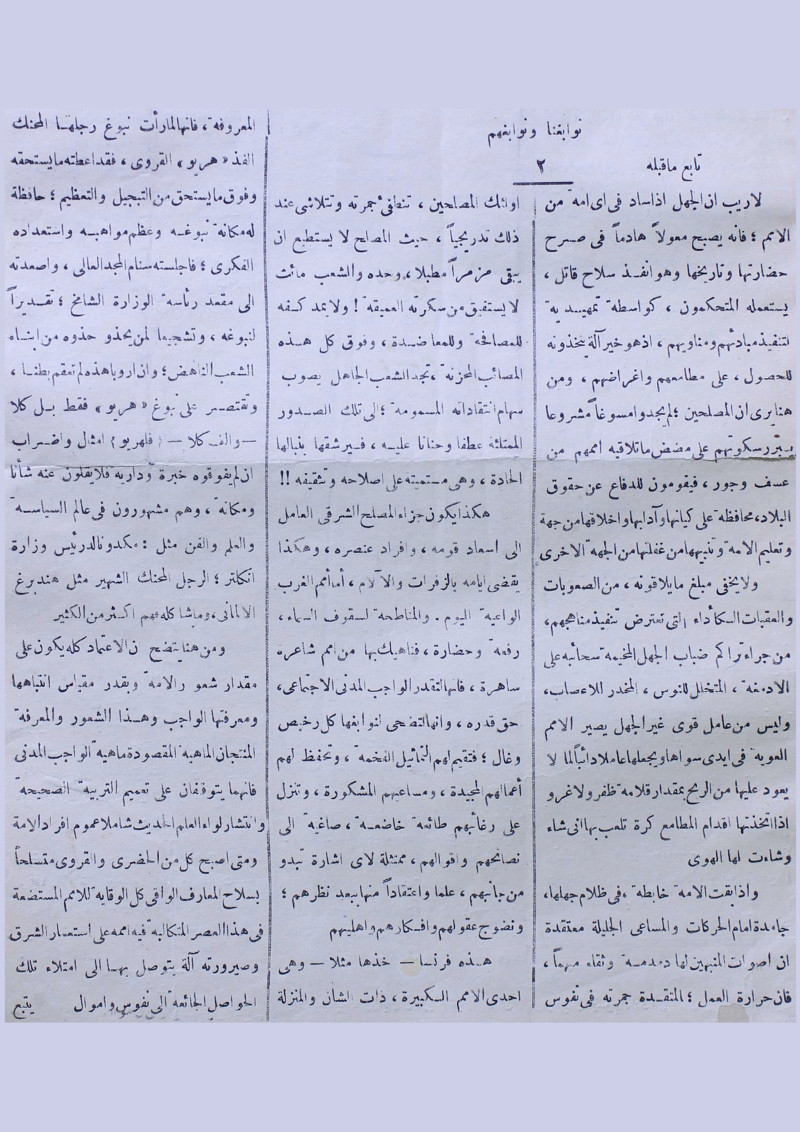 نوابغنا ونوابغهم
تابع ماقبله
٢
لاريب ان الجهل اذاساد فى اى امه من
الامم ؛ فانه يصبح معولاً هادماً فى صرح
حضارتها وتاريخها وهو انفذ سلاح قاتل ،
يستعمله المتحكمون ، كواسطة تمهيدية
لتنفيذ مبادئهم ومناويهم ، اذ هو خير آلة يتخذونه
للحصول ، على مطامعهم واغراضهم ، ومن
هنا يرى ان المصلحين ؛ لم يجدو امسوغاً مشروعا
يبرر سكوتهم على مضض ماتلاقيه اممهم من
عسف وجور ، فيقومون للدفاع عن حقوق
البلاد، محافظة على كيانها وآدابها واخلاقها من جهة
وتعليم الامة وتنبيهها من غفلتها من الجهة الاخرى
ولا يخفى مبلغ ما يلاقونه ، من الصعوبات
والعقبات الكأداء التى تعترض تنفيذ مناهجهم،
من جراء تراكم ضباب الجهل المخيمة سحائبه على
الادمغة ، المتخلل للنوس ، المخدر للاعصاب،
وليس من عامل قوى غير الجهل يصير الامم
العوبة فى ايدى سواها ويجعلها عاملا دائباً لما لا
يعود عليها من الربح بمقدار قلامة ظفر ولاغرو
اذا اتخذتها اقدام المطامع كرة تلعب بها انى شاء
وشاءت لها الهوى
واذا بقت الامة خابطة ، فى ظلام جهلها،
جامدة امام الحركات والمساعى الجليلة معتقدة
ان اصوات المنبهين لها دمدمة وثغاء مبهماً ،
فان حرارة العمل ؛ المتقدة جمرته فى نفوس
اوائك المصلحين ، تنطفئ جمرته وتتلاشى عند
ذلك تدريجياً ، حيث المصلح لا يستطيع ان
يبقى مزمراً مطبلا، وحده والشعب مائت
لا يستفيق من سكرته العميقة ! ولا يمد كفه
للمصافحة وللمعاضدة ، وفوق كل هذه
المصائب المحزنة ، تجد الشعب الجاهل يصوب
سهام انتقاداته المسمومة ؛ الى تلك الصدور
الممتلئة عطفا وحنانا عليه ، فيرشقها بنبالها
الحادة ، وهى مستميتة على اصلاحه وتثقيفه !!
هكذا يكون جزاء المصلح الشرقى العامل
الى اسعاد قومه ، وافراد عنصره ، وهكذا
يقضى ايامه بالزفرات والآلام ، أما أمم الغرب
الواعية اليوم . والمناطحة لسقوف السماء،
رفعة وحضارة ، فناهيك بها من امم شاعرة
ساهرة ، فانها لتقدر الواجب المدنى الاجتماعى،
حق قدره ، وانها لتضحى لنوابغها كل رخيص
وغال ؛ فتقيم لهم التماثيل الفخمة ، وتحفظ لهم
أعمالهم المجيدة ، ومساعيهم المشكورة ، وتنزل
على رغائبهم طائعة خاضعة ، صاغية الى
نصائحهم واقوالهم ، ممتثلة لاى اشارة تبدو
من جانبهم ، علما واعتقاداً منها ببعد نظرهم ؛
ونضوج عقولهم وافكارهم واهليتهم
هذه فرنسا — خذها مثلا — وهى
احدى الامم الكبيرة ، ذات الشان والمنزلة
المعروفة ، فانها لما رأت نبوغ رجلها المحنك
الفذ « هريو » القروى ، فقد اعطته ما يستحقه
وفوق ما يستحق من التبجيل والتعظيم ؛ حافظة
له مكانة نبوغه وعظم مواهبه واستعداده
الفكرى ؛ فاجلسته سنام المجد العالى ، واصعدته
الى مقعد رئاسة الوزارة الشامخ ؛ تقديراً
لنبوغه ، وتشجيعا لمن يحذو حذوه من ابناء
الشعب الناهض ؛ وان اروبا هذه لم تعقم بطنها ،
وتقتصر على نبوغ « هريو » فقط بل كلا
— والف كلا — ( فلهريو ) امثال واضراب
ان لم يفوقوه خبرة ودارية فلا يقلون عنه شأنا
ومكانة ، وهم مشهورون فى عالم السياسة
والعلم والفن مثل : مكدونالد رئيس وزارة
انكلترا ؛ الرجل المحنك الشهير مثل هندبرغ
الالمانى ، وما شاكله فهم اكثر من الكثير
ومن هنا يتضح ن الاعتماد كله يكون على
مقدار شعو رالامة وبقدر مقياس انتباهها
ومعرفتها الواجب وهذا الشعور والمعرفة
المنتجان الماهية المقصودة ماهية الواجب المدنى
فانهما يتوقفان على تعميم التربية الصحيحة
وانتشار لواء العلم الحديث شاملا عموم افراد الامة
ومتى اصبح كل من الحضرى والقروى متسلحاً
بسلاح المعارف الواقى كل الوقاية للامم المستضعة
فى هذا العصر المتكالبة فيه اممه على استعمار الشرق
وصيرورته آلة يتوصل بها الى امتلاء تلك
الحواصل الجائعة الى نفوس واموال يتبع